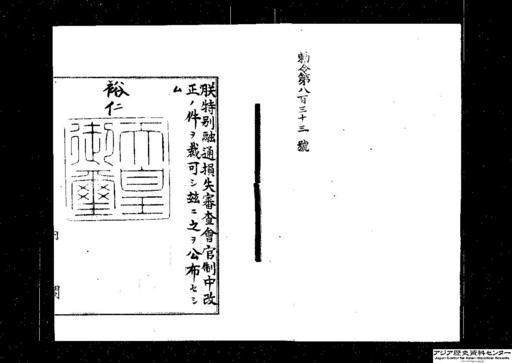 勅令第八百三十三號
朕特別融通損失審査會官制中改
正ノ件ヲ裁可シ茲ニ之ヲ公布セシ
ム
裕仁
天皇
御璽
アジア歴史資料センター
Japan Center for Asian Historical Records